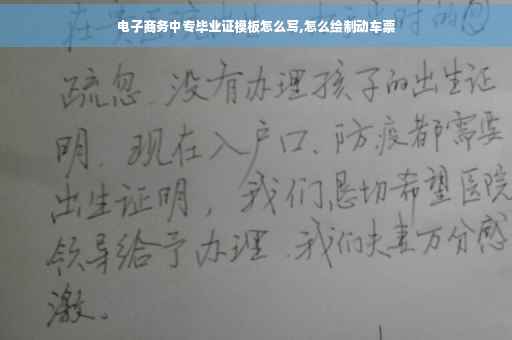 电子商务中专毕业证模板怎么写,怎么绘制动车票
疏忽.没有办理孩子的出生证
明.现在入户口、防疫都需要
出生证明，我们恳切希望医院
领导给予办理.我们夫妻万分感
激。